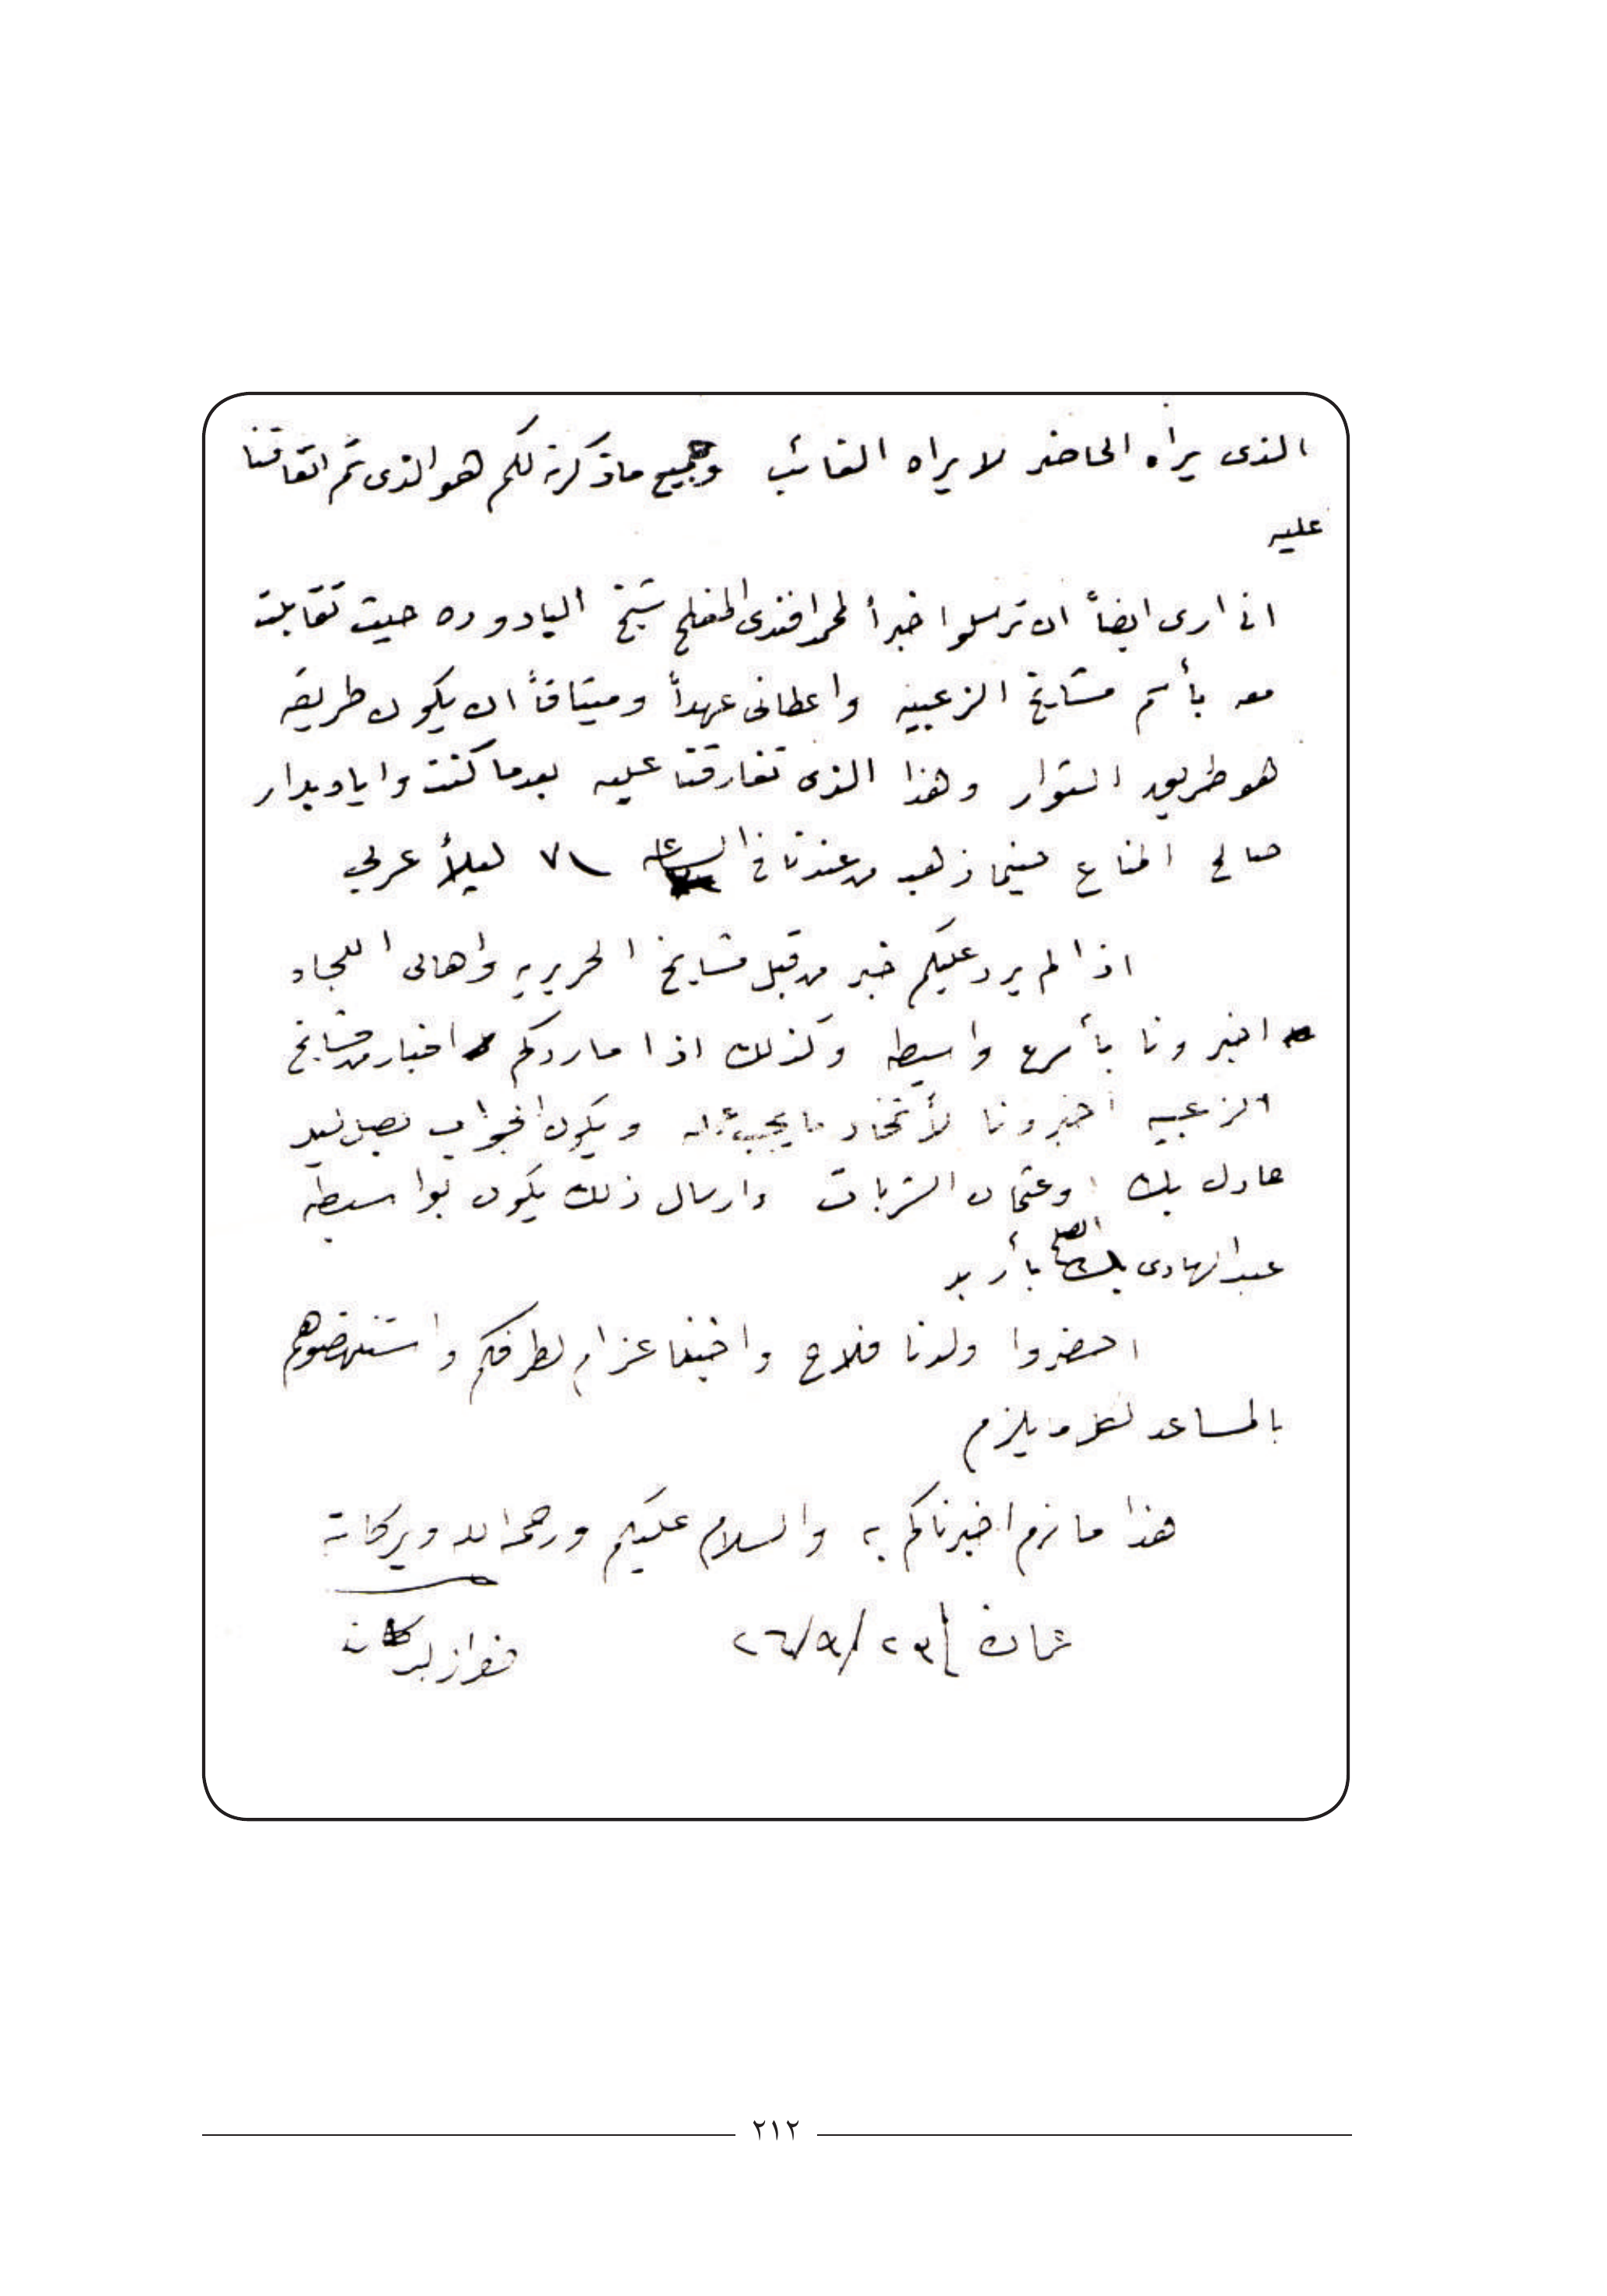 الذى يراه الحاضر لا يراه الغائب وجميع ما ذكرته لكم هو الذى تم اتفاقنا
عليه
انى ارى ايضاً ان ترسلوا خبراً لمحمد افندى المفلح شيخ اليادوده حيث تقابلت
معه بأسم مشايخ الزعبيه واعطانى عهداً وميثاقاً ان يكون طريقه
هو طريق الثوار وهذا الذى تفارقنا عليه بعدما كنت واياه بدار
صالح المناع حينما ذهب من عندنا فى الساعه ٧١ ليلاً عربي
اذا لم يرد عليكم خبر من قبل مشايخ الحريريه واهالى اللجاه
اخبرونا بأسرع واسيطه وكذلك اذا ما ردكم اخبار من مشايخ
الزعبيه اخبرونا لأتخاذ ما يجب ويكون الجواب يصل ليد
عادل بك وعثمان الشربات وارسال ذلك يكون بواسيطه
عبد الهادى بك الصلح بأربد
احضروا ولدنا فلاح واخينا عزام لطرفكم واستنهضوهم
بالمساعده لكل ما يلزم
هذا ما لزم اخبرناكم به والسلام عليكم ورحمة الله وبركاته
عمان ٢٣/٩/٢٦
فواز البركات
٢١٢